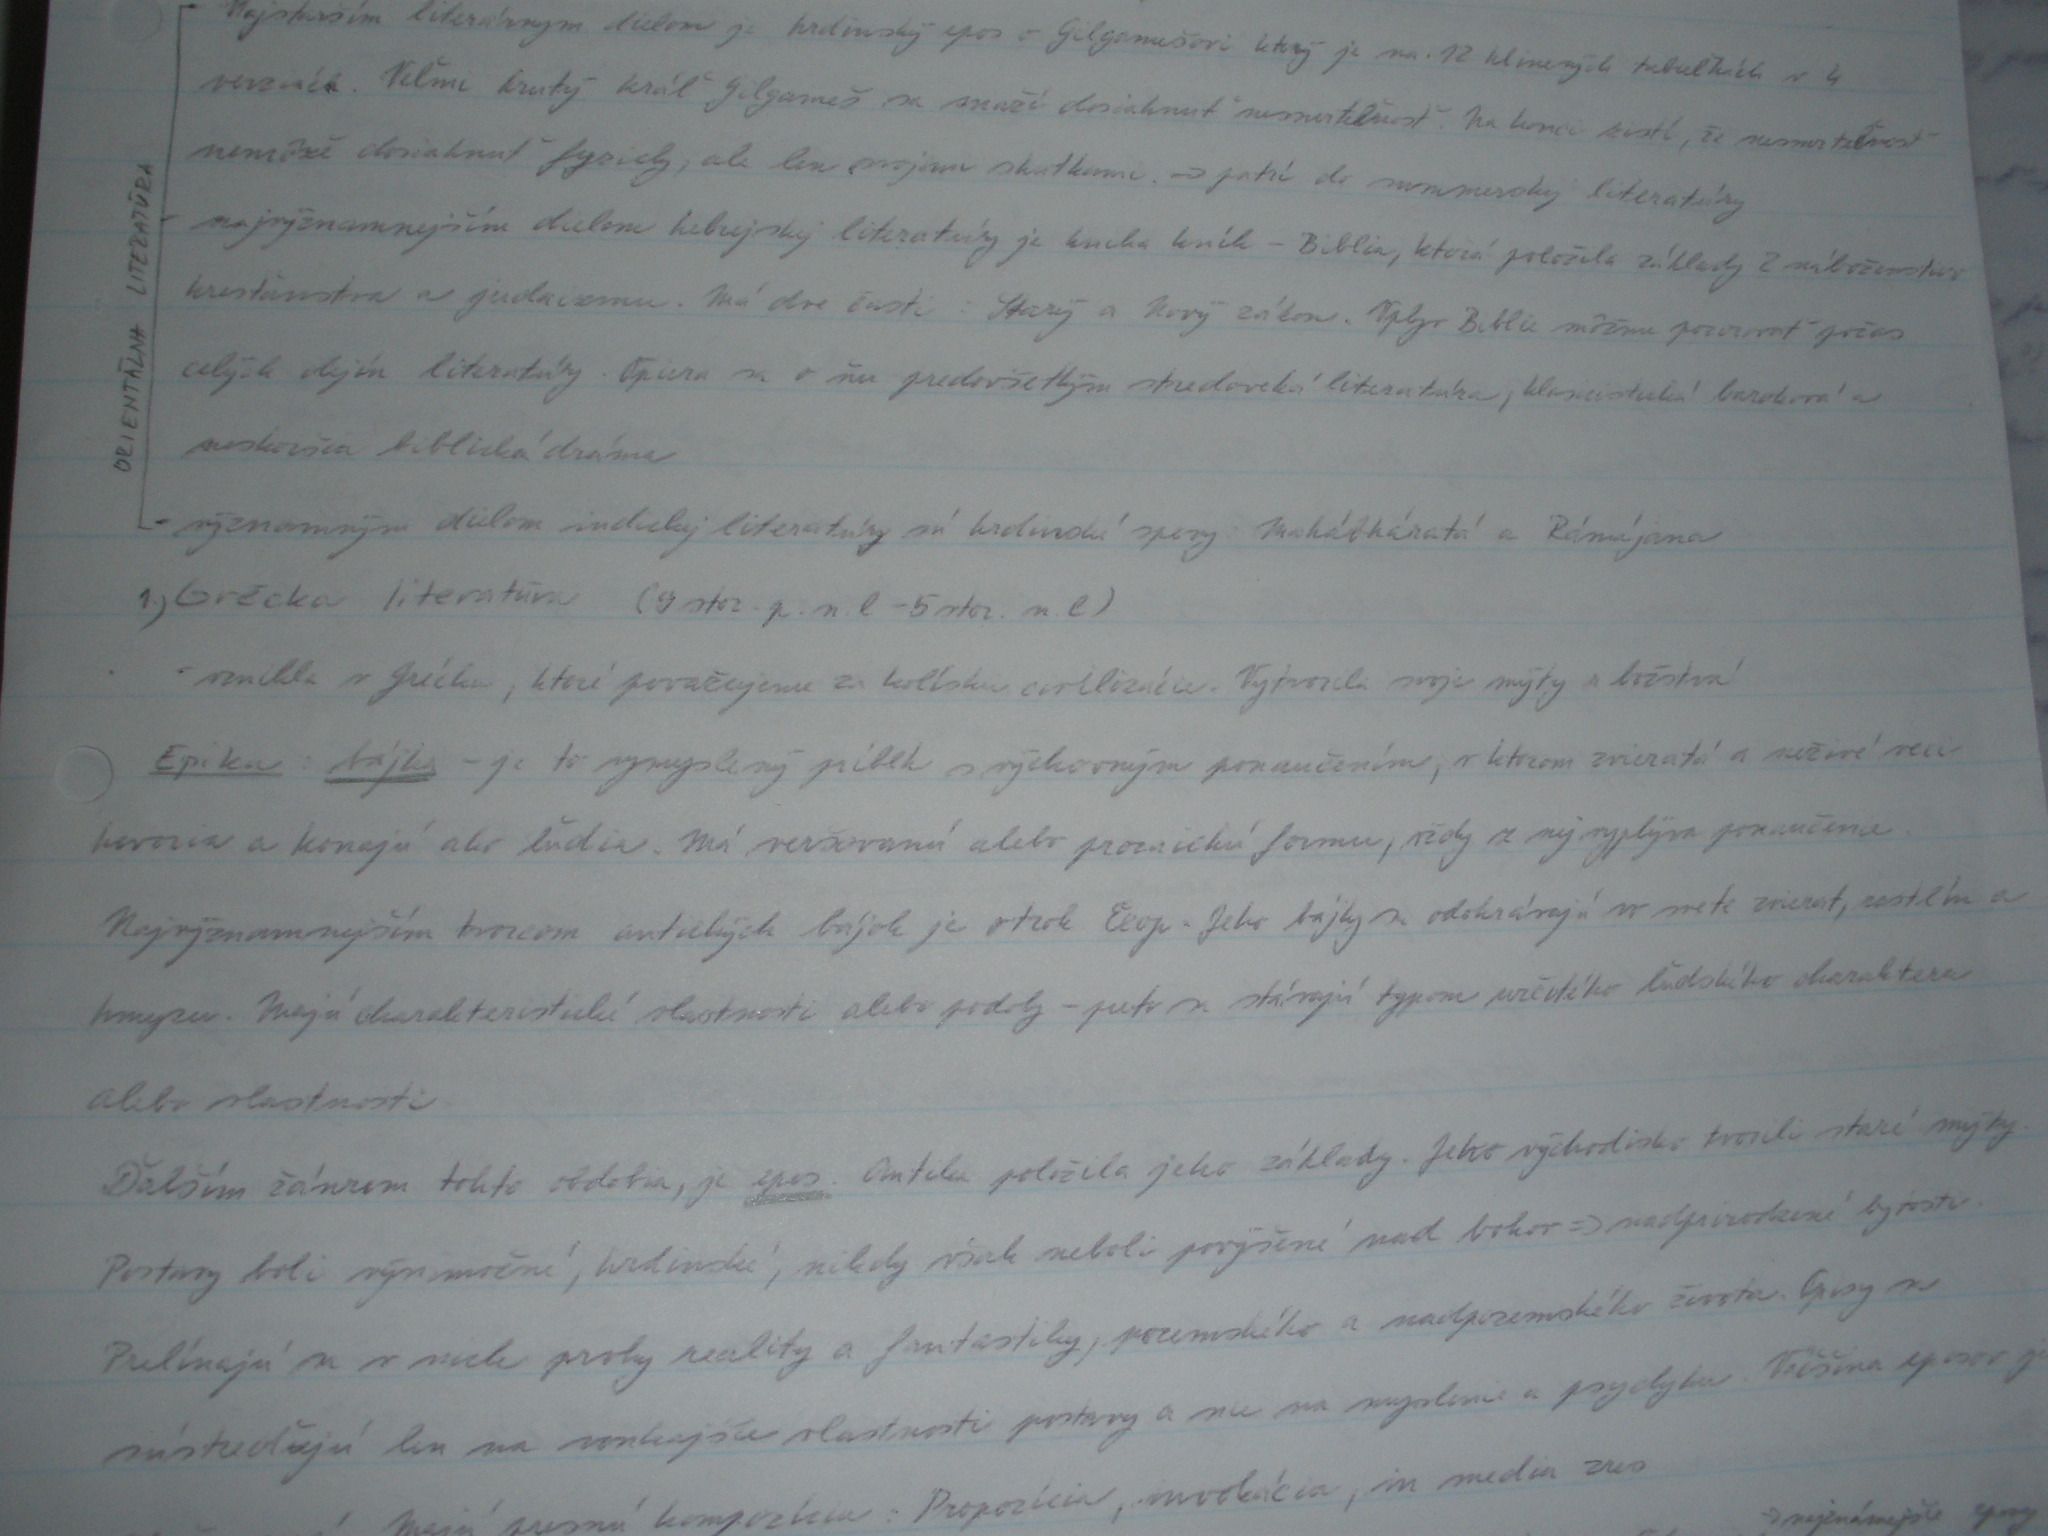 ORIENTÁLNA LITERATÚRA
- Najstarším literárnym dielom je hrdinský epos o Gilgamešovi ktorý je na 12 hlinených tabuľkách v 4
verziách. Veľmi krutý kráľ Gilgameš sa snaží dosiahnuť nesmrteľnosť. Na konci zistí, že nesmrteľnosť
nemôže dosiahnuť fyzicky, ale len svojimi skutkami. => patrí do sumerskej literatúry
- najvýznamnejším dielom hebrejskej literatúry je kniha kníh - Biblia, ktorá položila základy 2 náboženstiev
kresťanstva a judaizmu. Má dve časti: Starý a Nový zákon. Vplyv Biblie môžme pozorovať počas
celých dejín literatúry. Opiera sa o ňu predovšetkým stredoveká literatúra, klasicistická baroková a
neskoršia biblická dráma
- významným dielom indickej literatúry sú hrdinské eposy: Mahábháratá a Rámájana
1.) Grécka literatúra (9 stor. p. n. l - 5 stor. n. l)
- vznikla v Grécku, ktoré považujeme za kolísku civilizácie. Vytvorila svoje mýty a božstvá
Epika: bájka - je to vymyslený príbeh s výchovným ponaučením, v ktorom zvieratá a neživé veci
hovoria a konajú ako ľudia. Má veršovanú alebo prozaickú formu, vždy z nej vyplýva ponaučenie.
Najvýznamnejším tvorcom antických bájok je otrok Ezop. Jeho bájky sa odohrávajú vo svete zvierat, rastlín a
hmyzu. Majú charakteristické vlastnosti alebo podoby - preto sa stávajú typom určitého ľudského charakteru
alebo vlastnosti
Ďalším žánrom tohto obdobia, je epos. Antika položila jeho základy. Jeho východisko tvorili staré mýty.
Postavy boli výnimočné, hrdinské, nikdy však neboli povýšené nad bohov => nadprirodzené bytosti.
Prelínajú sa v nich prvky reality a fantastiky, pozemského a nadpozemského života. Eposy sa
sústreďujú len na vonkajšie vlastnosti postavy a nie na myslenie a psychiku. Väčšina eposov je
Majú presnú kompozíciu: Propozícia, invokácia, in media res
=> najznámejšie eposy